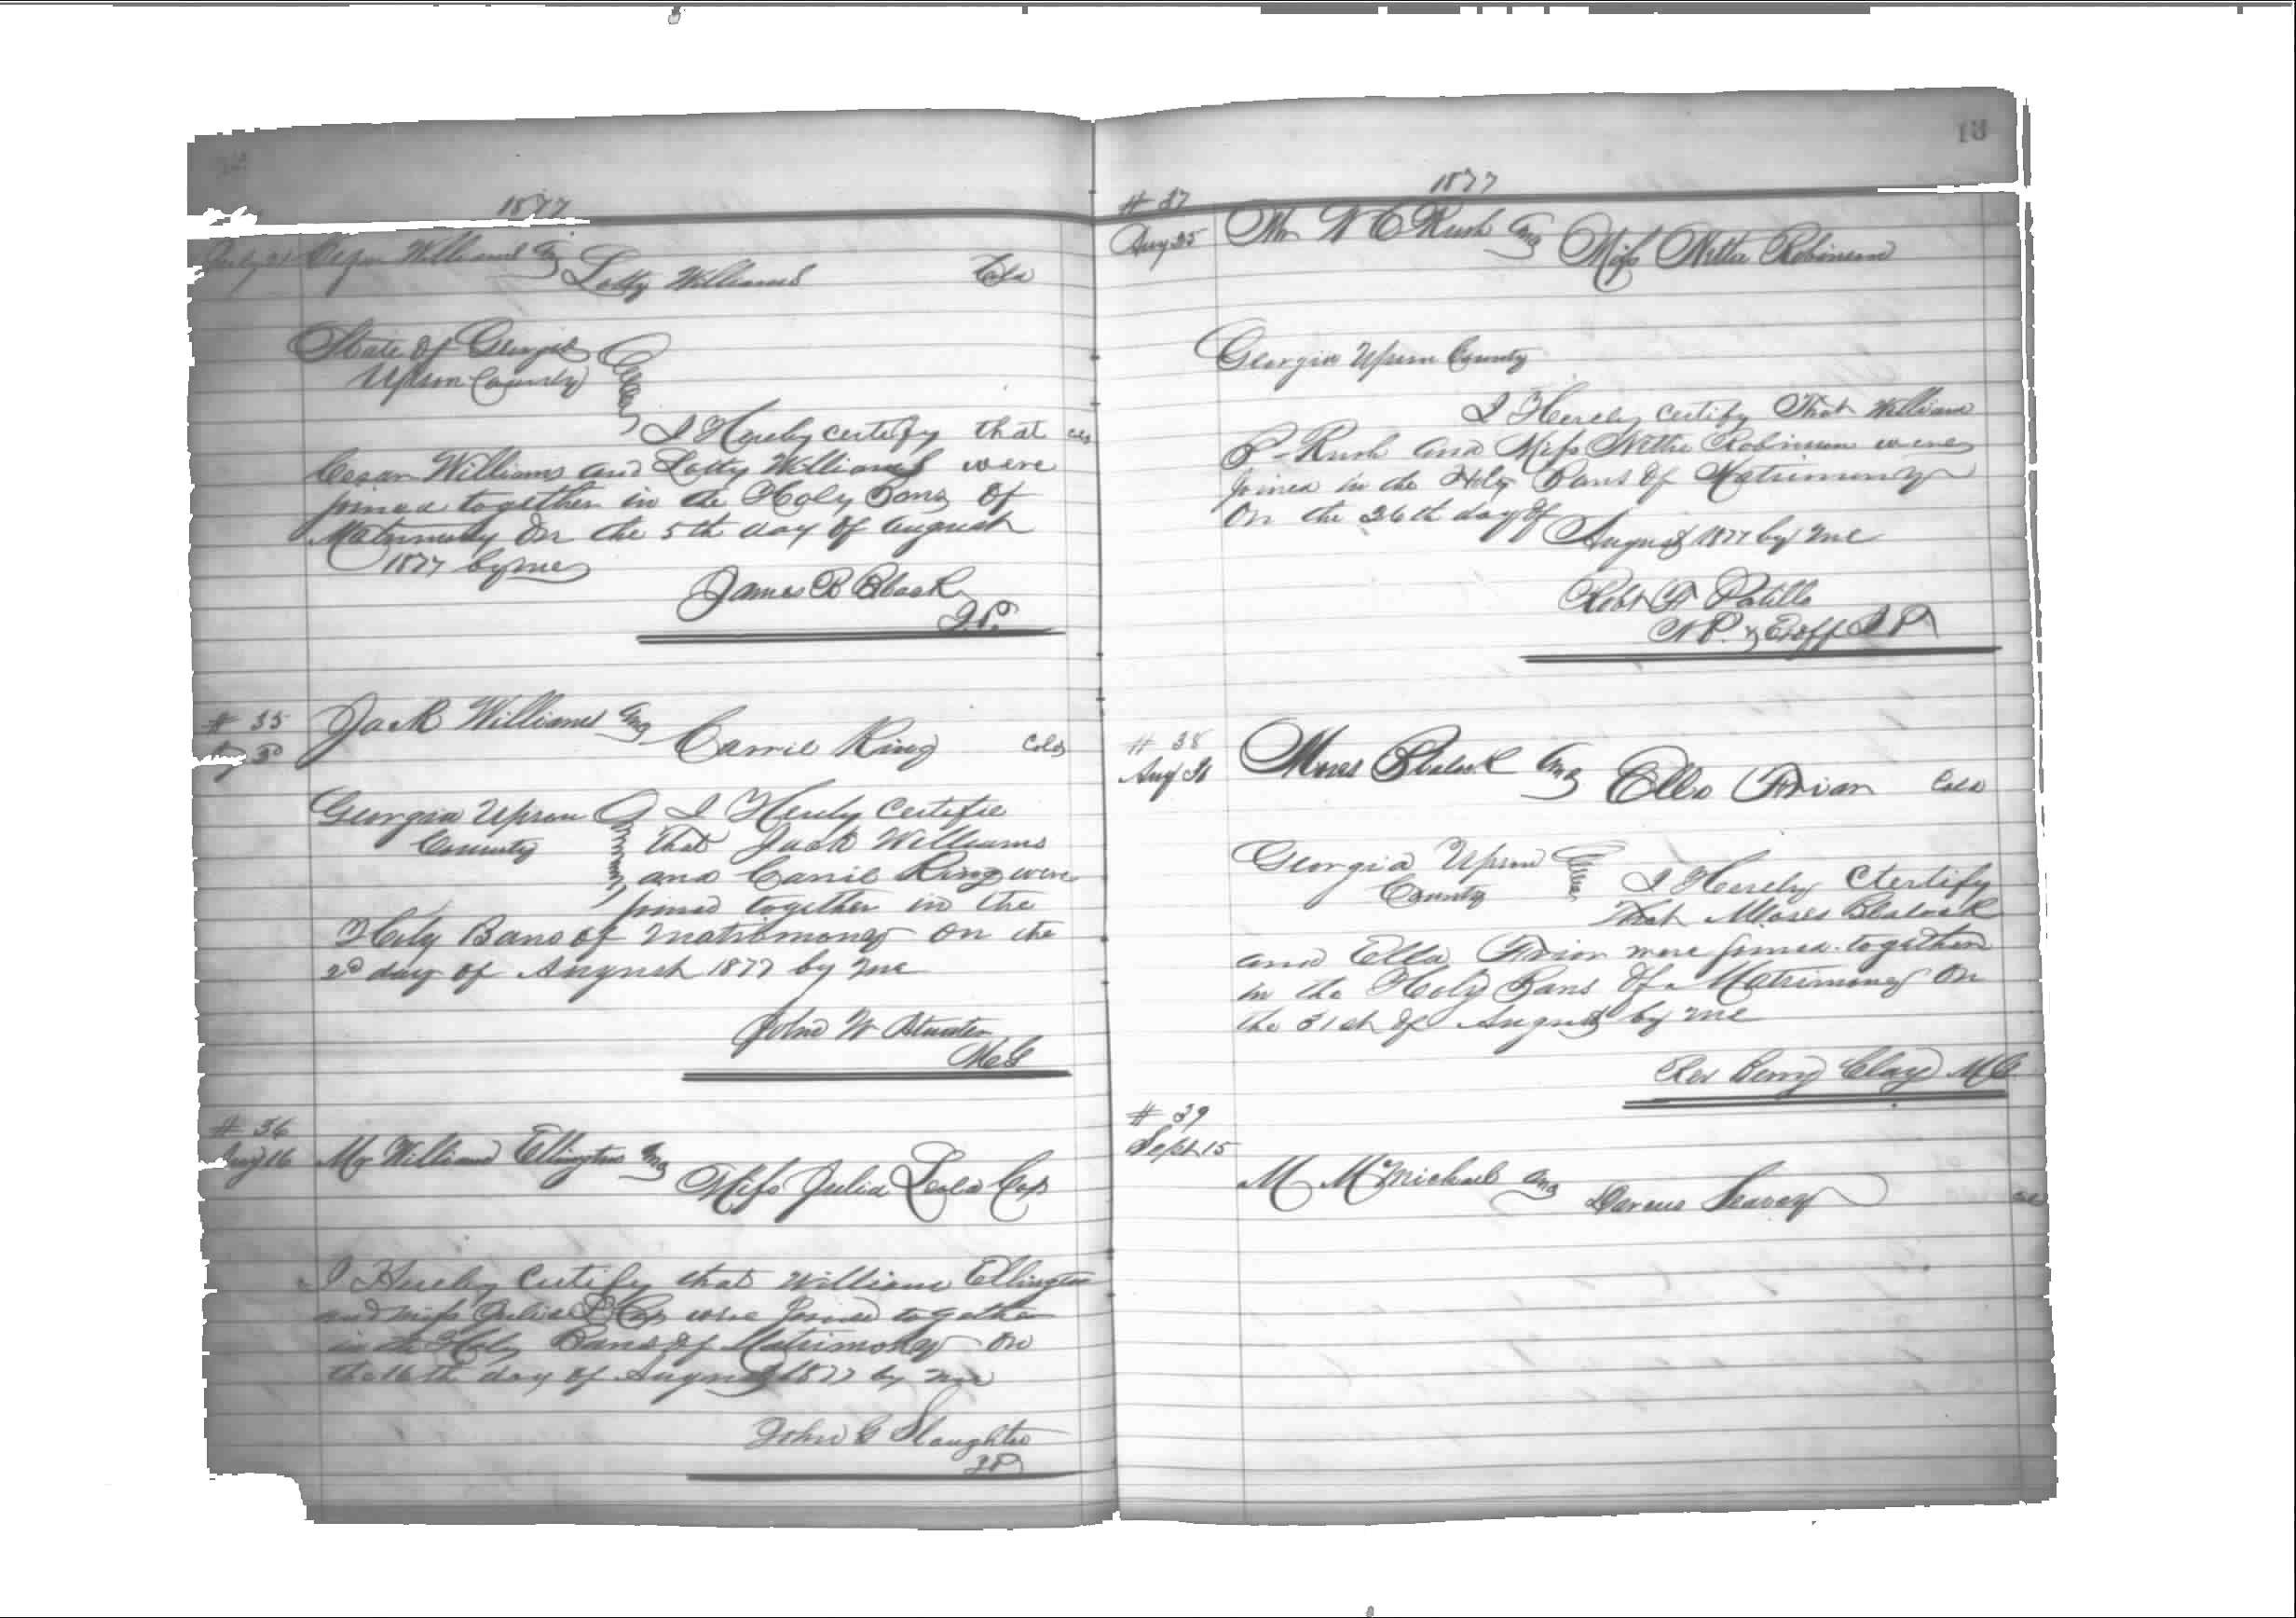 1877
July 31 Cesar Williams and Lotty Williams Cold
State of Georgia
Upson County
I Hereby certify that col
Cesar Williams and Lotty Williams were
joined together in the Holy Bans of
Matrimony On the 5th day of August
1877 by me
James B Black
J.P.
# 35
Jack Williams and Carrie King Cold
Georgia Upson I Hereby Certifie
County that Jack Williams
and Carrie King were
joined together in the
Holy Bans of Matrimony On the
2d day of August 1877 by me
John W
# 36
Aug 16 Mr William Ellington and Miss Julia Lola
I Hereby Certify that William Ellington
and Miss Julia L were Joined together
in the Holy Bans of Matrimony On
the 16th day of August 1877 by me
John G Slaughter
JP
13
1877
# 37
Aug 25 Mr W C Rush and Miss Nettie Robinson
Georgia Upson County
I Hereby certify That William
C Rush and Miss Nettie Robinson were
Joined in the Holy Bans Of Matrimony
On the 26th day of
August 1877 by me
Robt F Patillo
NP & Exoff J P
# 38
Aug 31 Moses Blalock and Ella Cold
Georgia Upson
County I Hereby Ctertify
That Moses Blalock
and Ella were joined together
in the Holy Bans Of Matrimony On
the 31st of August by me
Rev Berry Clay M G
# 39
Sept 15
M McMichael and Darcus Searcy col